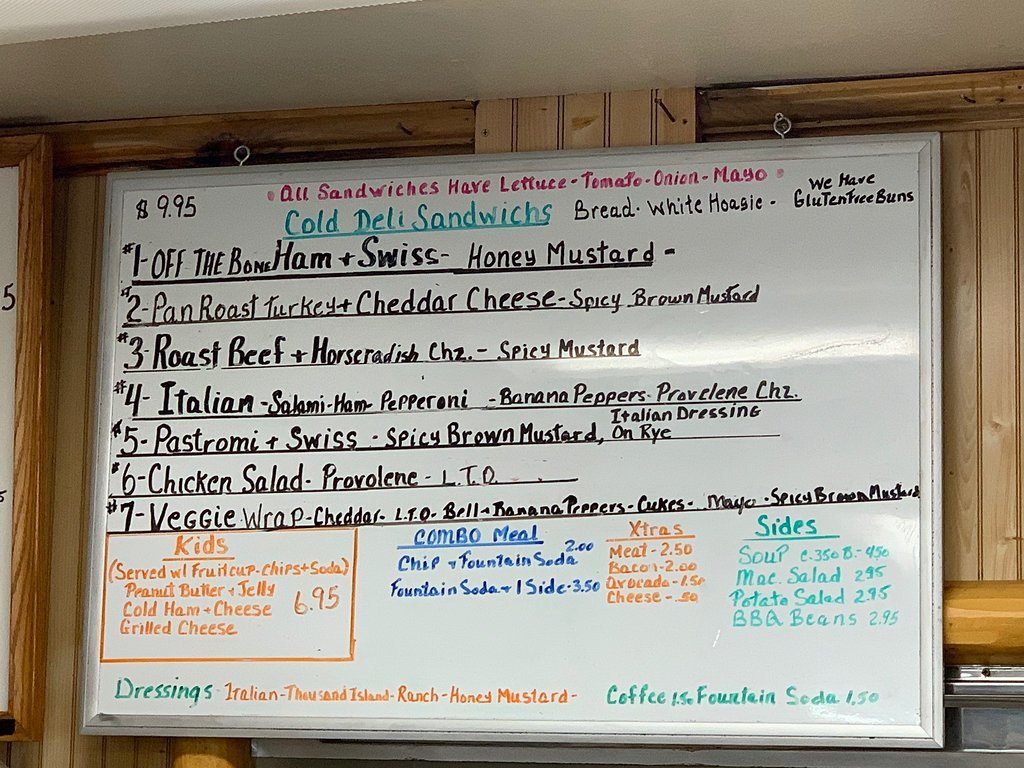 • All Sandwiches Have Lettuce - Tomato - Onion - Mayo •
$ 9.95
Cold Deli Sandwichs Bread - White Hoagie - We Have GlutenFree Buns
#1 - OFF THE BONE Ham + Swiss - Honey Mustard -
#2 - Pan Roast Turkey + Cheddar Cheese - Spicy Brown Mustard
#3 - Roast Beef + Horseradish Chz. - Spicy Mustard
#4 - Italian - Salami - Ham - Pepperoni - Banana Peppers - Provelene Chz.
Italian Dressing
#5 - Pastromi + Swiss - Spicy Brown Mustard, On Rye
#6 - Chicken Salad - Provolene - L.T.O.
#7 - Veggie Wrap - Cheddar - L.T.O - Bell + Banana Peppers - Cukes - Mayo - Spicy Brown Mustard
Kids
(Served w/ Fruitcup - Chips + Soda)
Peanut Butter + Jelly
Cold Ham + Cheese 6.95
Grilled Cheese
COMBO Meal
Chip + Fountain Soda 2.00
Fountain Soda + 1 Side - 3.50
Xtras
Meat - 2.50
Bacon - 2.00
Avocado - 1.50
Cheese - .50
Sides
Soup C. 3.50 B. - 4.50
Mac. Salad 2.95
Potato Salad 2.95
BBQ Beans 2.95
Dressings - Italian - Thousand Island - Ranch - Honey Mustard -
Coffee 1.50 Fountain Soda 1.50
5